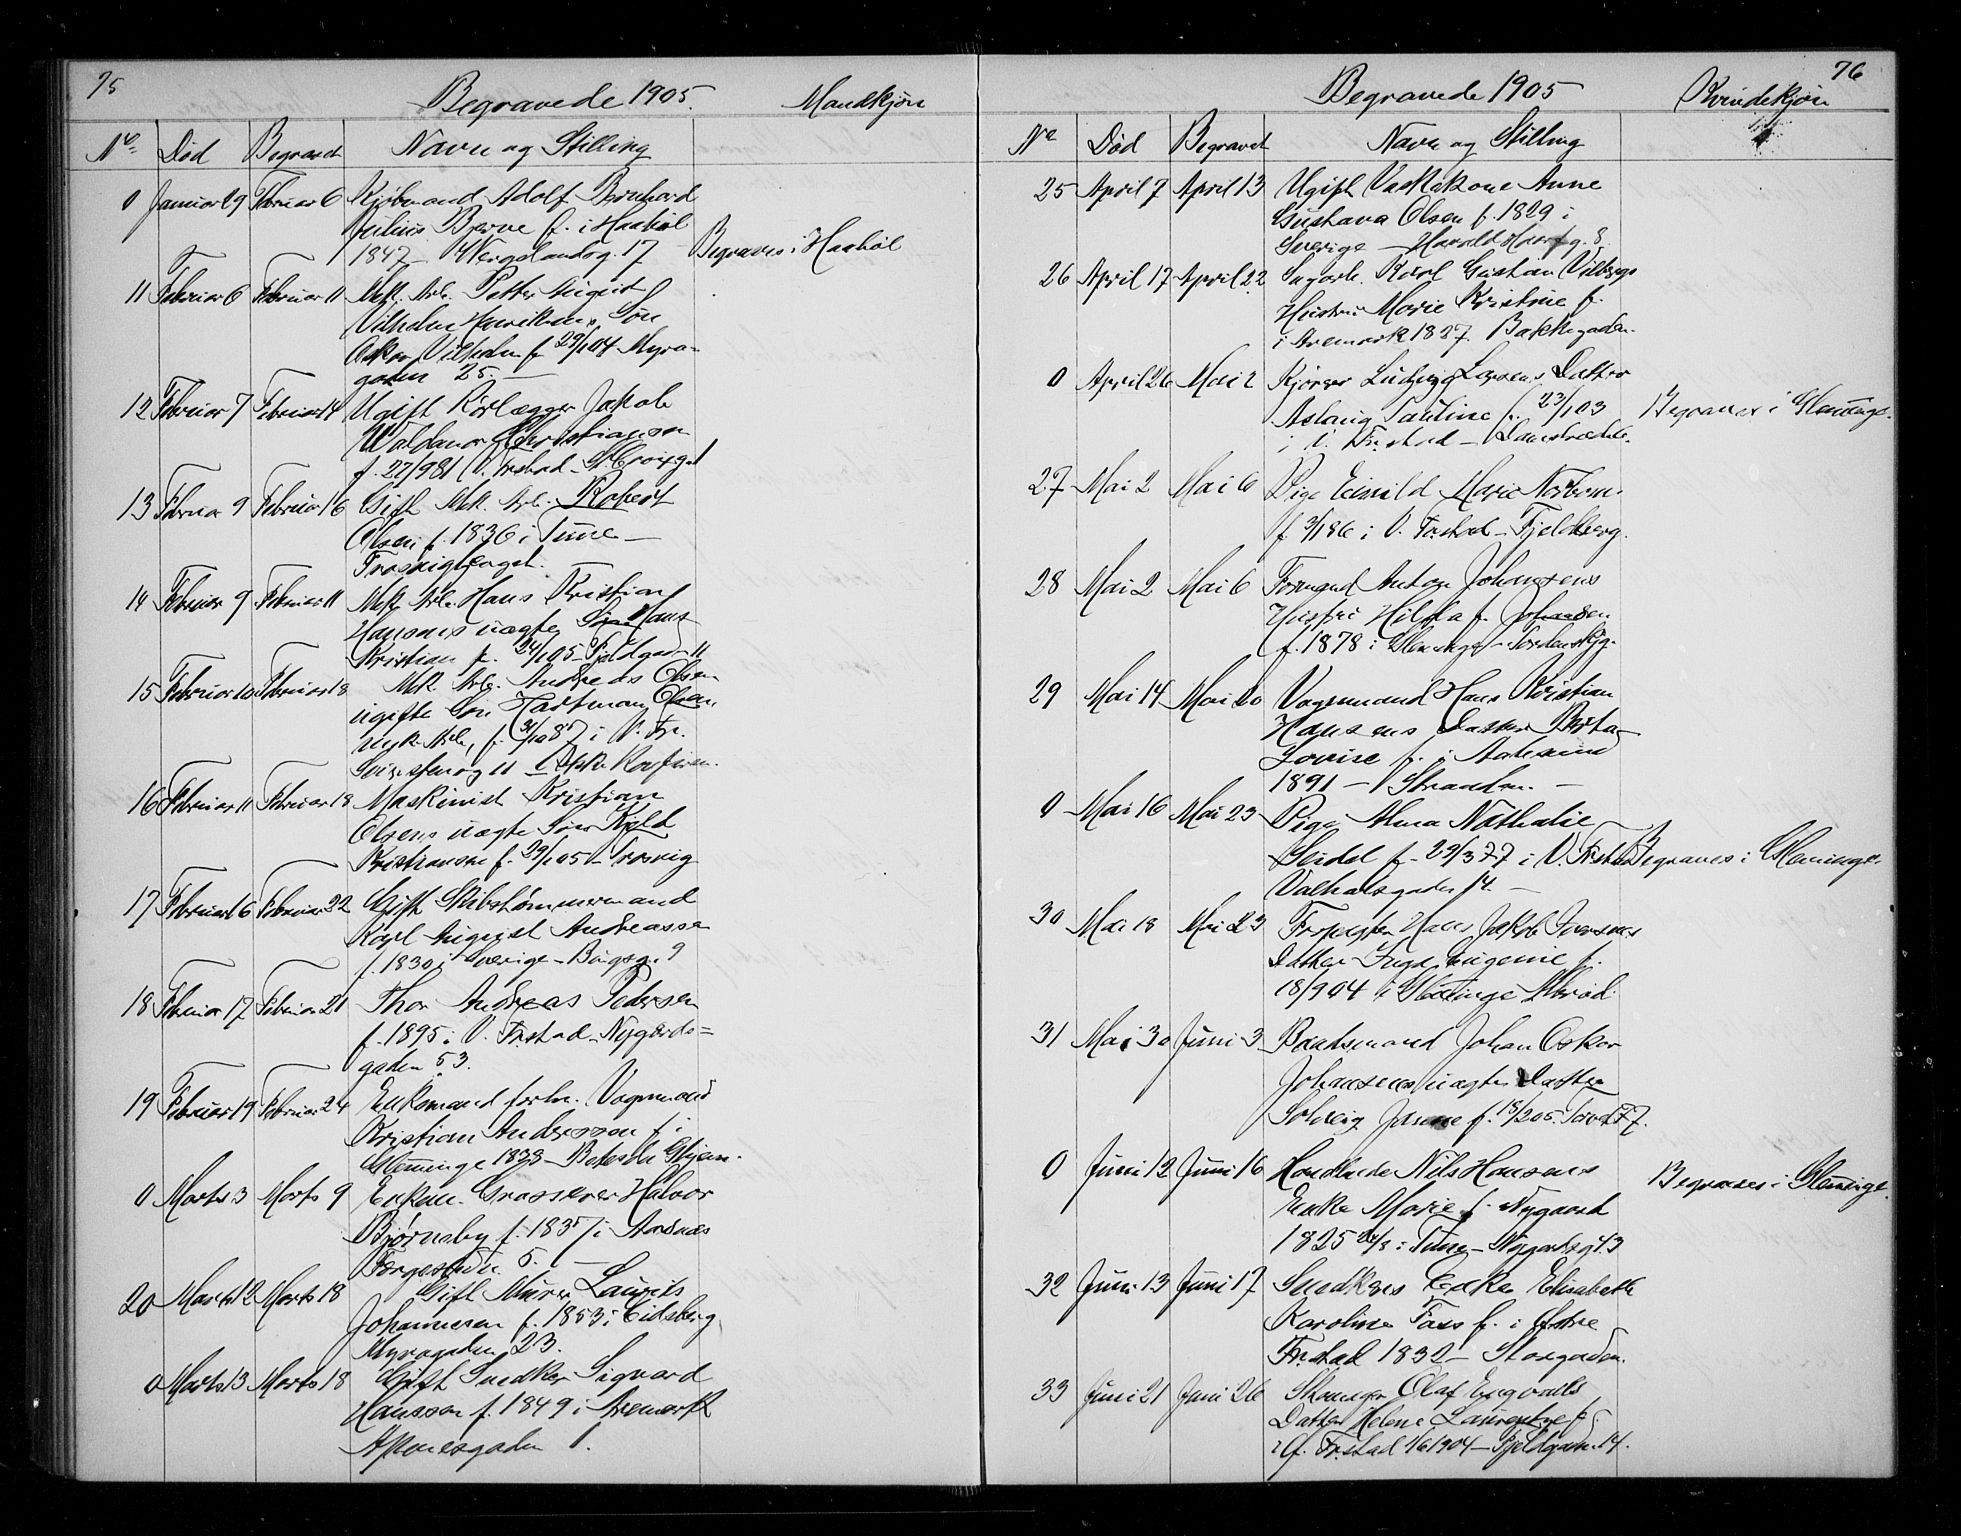 75
Begravede 1905. Mandkjøn
No Død Begravet Navn og Stilling
0 Januar 29 Februar 6 Kjøbmand Adolf Bernhard
Julius Bjerve f. i Haabøl
1847 – Wergelandsg. 17 – Begraves i Haabøl
11 Februar 6 Februar 11 Mek. Arb. Petter August
Vilhelm Henriksens Søn
Oskar Vilhelm f. 29/1 04 Myra-
gaden 25. –
12 Februar 7 Februar 14 Ugift Rørlægger Jakob
Waldemar Christiansen
f. 27/9 81 V. Frstad – St. Croixg. 1
13 Februar 9 Februar 16 Gift Mek. Arb. Robert
Olsen f. 1836 i Tune –
14 Februar 9 Februar 11 Mek. Arb. Hans Kristian
Hansens uægte Søn Hans
Kristian f. 24/1 05 – Fjeldgad. 11
15 Februar 10 Februar 18 Mek. Arb. Andreas Olsen
ugifte Søn Hartmann Olsen,
Mek. Arb., f. 31/10 87 i V. Fr.
16 Februar 11 Februar 18 Maskinist Kristian
Olsens uægte Søn Kjeld
Kristiansen f. 29/1 05 – Trosvig
17 Februar 16 Februar 22 Gift Skibstømmermand
Karl August Andreassen
f. 1830 i Sverige – Bugsg. 9
18 Februar 17 Februar 21 Thor Andreas Pedersen
f. 1895 i V. Frstad – Nygaards=
gaden 53.
19 Februar 19 Februar 24 Enkemand forhv. Vognmand
Kristian Anderssen f. i
Glemminge 1838 – Betesda Hjem.
0 Marts 3 Marts 9 Enkem. Grosserer Halvor
Bjørneby f. 1837 i
Færgestedn. 5. –
20 Marts 12 Marts 18 Gift Murer Laurits
Johannesen f. 1853 i Eidsberg
Myragaden 23.
0 Marts 13 Marts 18 Gift Snedker Sigvard
Hanssen f. 1849 i Aremark
Agnesgaden 1.
76
Begravede 1905 Kvindekjøn
No Død Begravet Navn og Stilling
25 April 7 April 13 Ugift Vaskekone Anne
Gustava Olsen f. 1829 i
Sverige – Harald Haarfg. 8.
26 April 17 April 22 Sagarb. Karl Gustav Vilbergs
Hustru Marie Kristine f.
i Aremark 1837. Bakkegaden.
0 April 26 Mai 2 Kjører Ludvig Larsens Datter
Aslaug Pauline f. 23/1 03 Begraves i Glemminge.
i V. Frstad – Damstrædet.
27 Mai 2 Mai 6 Pige Marie Norbom.
f. 3/1 86 i V. Frstad – Fjeldberg.
28 Mai 2 Mai 6 Formand Anton Johansens
Hustru Hilda f. Johansen
f. 1878 i Glemminge – Tordenskjg.
29 Mai 14 Mai 20 Vognmand Hans Kristian
Hansens Datter Berta
Lovise f. i
1891 – Stranden. –
0 Mai 16 Mai 23 Pige Alma Nathalie
Seidel f. 29/3 77 i V. Frstad Begraves i Glemminge.
Valhalsgaden 14. –
30 Mai 18 Mai 23 Forpagter Hans Jakob Iversens
Datter Inga Eugenie f.
18/9 04 i Glemminge
31 Mai 30 Juni 3 Baadsmand Johan Oskar
Johansens uægte Datter
Solveig f. 18/2 05.
0 Juni 12 Juni 16 Handlende Nils Hansens
Enke Marie f. Nygaard Begraves i Glemminge.
1825 24/8 i Tune – Nygaardsg. 43
32 Juni 13 Juni 17 Snedkers Enke Elisabeth
Karoline Foss f. i Østre
Frstad 1832 – Storgaden.
33 Juni 21 Juni 26 Skomager Olaf Engvalls
Datter Helene Laurentze f.
i V. Frstad 1/6 1904 – Fjeldgaden 14.